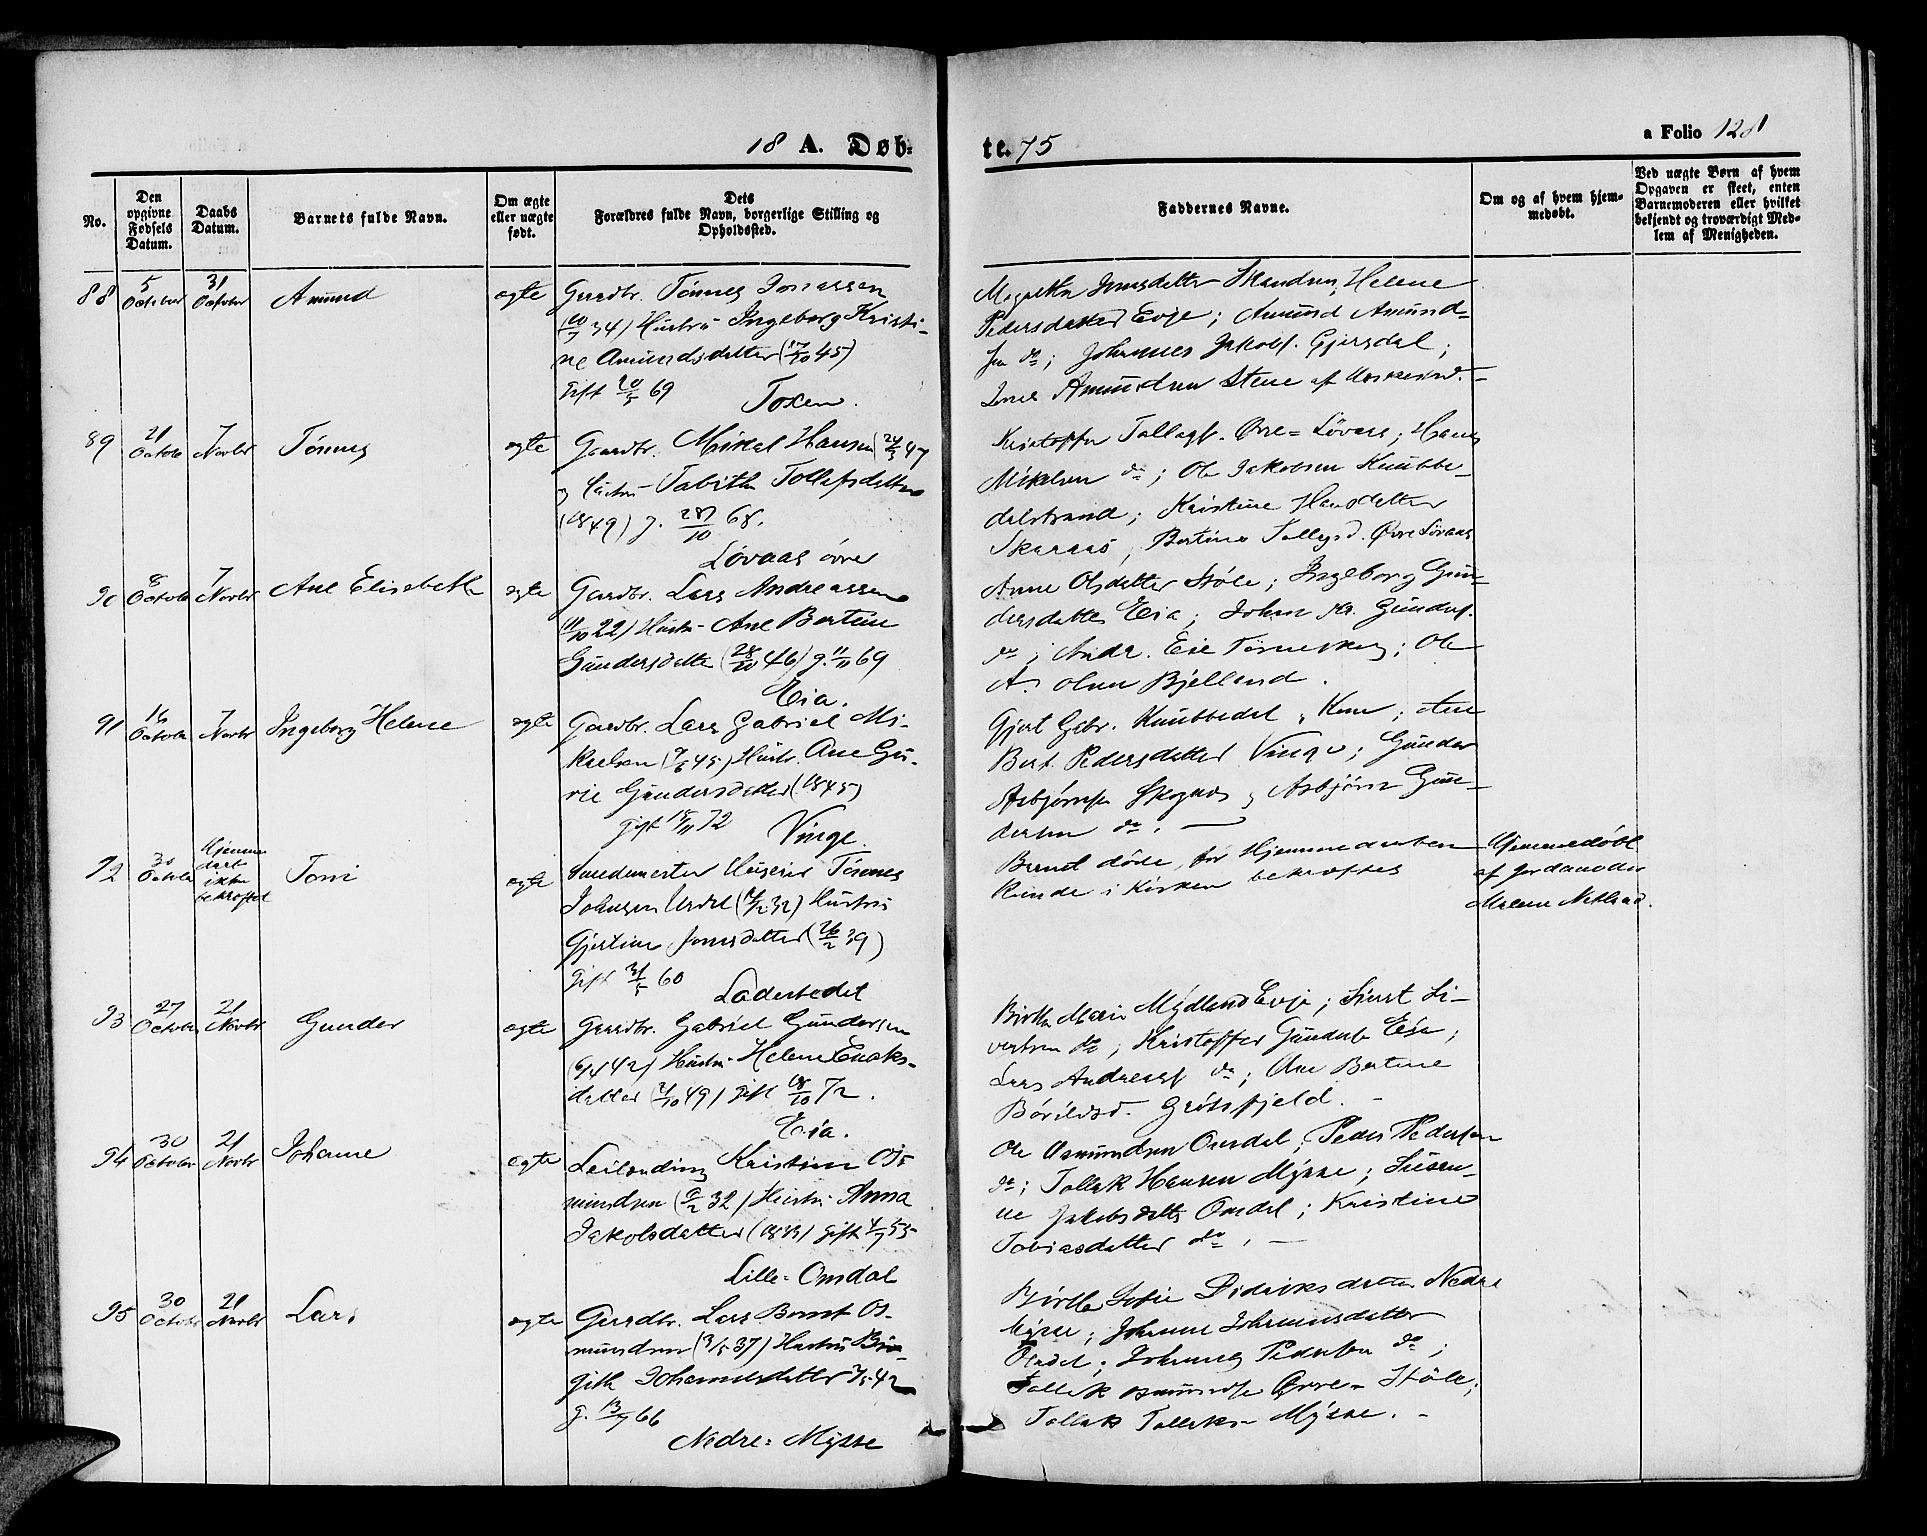 18 A. Døb-
te. 75
a Folio 128
No.
Den opgivne Fødsels Datum.
Daabs Datum.
Barnets fulde Navn.
Om ægte eller uægte født.
Dets Forældres fulde Navn, borgerlige Stilling og Opholdssted.
Faddernes Navne.
Om og af hvem hjemmedøbt.
Ved uægte Børn af hvem Opgaven er skeet, enten Barnemoderen eller hvilket bekjendt og troværdigt Medlem af Menigheden.
88 5 October 31 October Amund ægte
Gaardbr. Tönnes Jonassen
34) Hustru Ingeborg Kristi-
ne Amundsdatter (17/10 45)
gift 20/5 69 Toxen.
Pedersdatter Evje; Amund Amund-
sen do; Johannes Jakobs. Gjersdal;
Amundsen Stene af
89 21 Octobr 7 Novbr Tönnes ægte
Gaardbr. Mikal Hansen 47
og Hustru Tabitha Tollefsdatter
(1849) g. 28/10 68.
Lövaas övre
Kristoffer Tollagf. Övre-Lövaas; Hans
Mikalsen do; Ole Jakobsen Knubbe-
dalstrand; Kristine Hansdatter
Skaraas, Bertine Tollagsd. Övre Lövaas
90 8 Octobr 7 Novbr Ane Elisabeth ægte
Gaardbr. Lars Andreassen
(11/10 22) Hustru Ane Bertine
Gundersdatter (28/10 46) g. 11/11 69
Eia.
Anne Olsdatter Stöle; Ingeborg Gun-
dersdatter Eia; Johan Gunders.
do; Andr. Eie; Ole
A. Olsen Bjelland.
91 16 Octobr 7 Novbr Ingeborg Helene ægte
Gaardbr. Lars Gabriel Mi-
kaelsen (7/6 45) Hustr. Ane Gu-
rie Gundersdatter (1845)
gift 18/11 72 Vinge.
Gjert Gabr. Knubbedal, Kone; Ane
Bert. Pedersdatter Vinge; Gunder
Asbjörnsen Skognes, Asbjörn Gun-
dersen do.
92 30 Octobr Hjemme
daab
ikke
bekræftet Toni ægte
Huseier Tönnes
Johnsen (32) Hustru
Gjertine Jonsdatter (26/2 39)
gift 31/5 60
Ladestedet
Barnet döde, för Hjemmedaaben
kunde i Kirken bekræftes
Hjemmedöbt
af Jordmoder
Malene Netland.
93 27 October 21 Novbr Gunder ægte
Gaardbr. Gabriel Gundersen
(6/4 42) Hustru Helene Enoks-
datter (2/10 49) gift 18/10 72.
Eia.
Birthe Marie Mydland Evje; Sivert Si-
vertsen do; Kristoffer Gunders. Eia;
Lars Andreass. do; Ane Bertine
Börildsd. Grötsfjeld.
94 30 October 21 Novbr Johanne ægte
Leilending Kristian Os-
mundsen (32) Hustru Anna
Jakobsdatter gift 4/7 55
Lille-Omdal
Ole Osmundsen Omdal; Peder Pedersen
do; Tollak Hansen Mysse; Susan-
ne Jakobsdatter Omdal; Kristine
Tobiasdatter do.
95 30 Octobr 21 Novbr Lars ægte
Gaardbr. Lars Bernt Os-
mundsen (3/5 37) Hustru Bir-
gith Johannesdatter 42
g. 13/7 66
Nedre-Mysse
Birthe Sofie Didriksdatter Nedre
Mysse; Johanne Johannesdatter
Johannes Pedersen do;
Tollak Osmundsen Övre-Stöle;
Tollak Tollaks. Mysse.